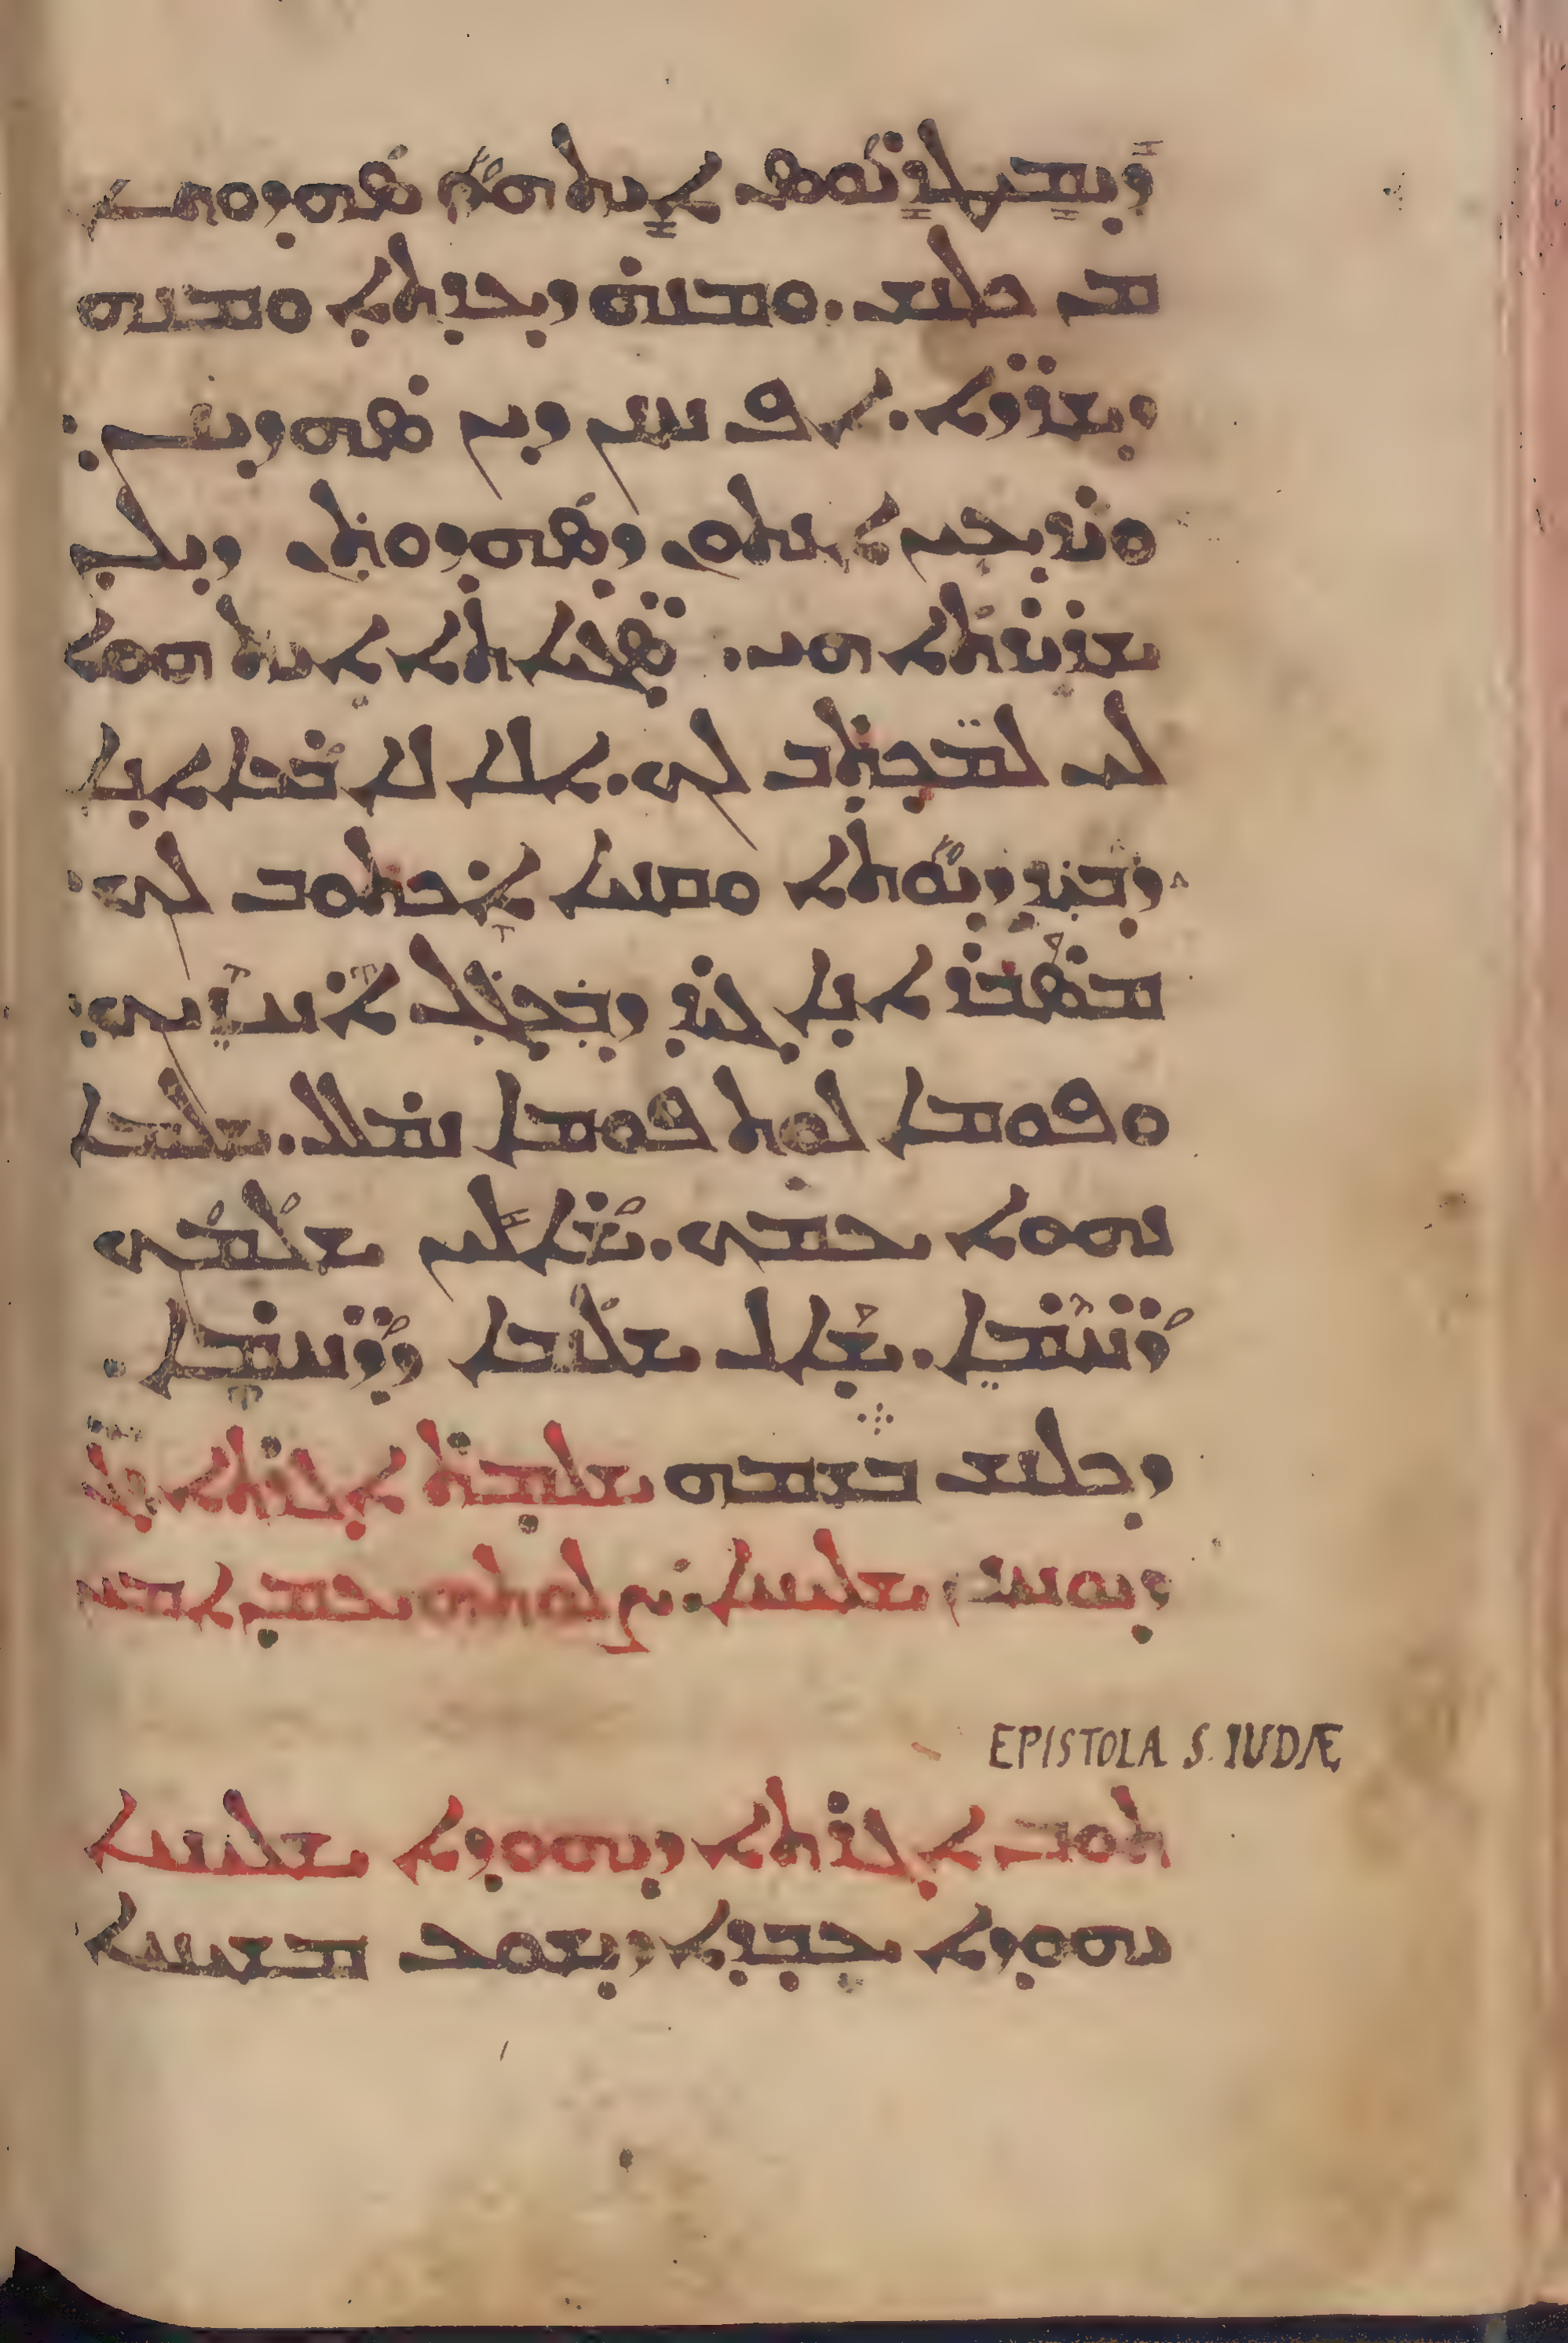 ܕܝܡܛܪܝܘܣ ܐܝܬ ܗܘܐ ܣܗܕܘܬܐ
ܡܢ ܟܠܢܫ. ܘܡܢܗ ܕܥܕܬܐ ܘܡܢܗ
ܕܫܪܪܐ. ܐܦ ܚܢܢ ܕܝܢ ܣܗܕܝܢܢ:
ܘܝܕܥܝܢ ܐܢܬܘܢ ܕܣܗܕܘܬܢ ܕܝܠܢ
ܫܪܝܪܬܐ ܗܝ. ܣܓܝܐܬܐ ܐܝܬ ܗܘܐ
ܠܝ ܠܡܟܬܒ ܠܟ. ܐܠܐ ܠܐ ܨܒܐ ܐܢܐ
ܕܒܝܕ ܕܝܘܬܐ ܘܩܢܝܐ ܐܟܬܘܒ ܠܟ:
ܡܣܒܪ ܐܢܐ ܓܝܪ ܕܒܥܓܠ ܐܚܙܝܟ:
ܘܦܘܡܐ ܠܘܬ ܦܘܡܐ ܢܡܠܠ. ܫܠܡܐ
ܢܗܘܐ ܥܡܟ. ܫܐܠܝܢ ܫܠܡܟ
ܪܚܡܐ. ܫܐܠ ܫܠܡܐ ܕܪܚܡܐ.
ܕܟܠܢܫ ܒܫܡܗ ܫܠܡܬ ܐܓܪܬܐ
ܕܝܘܚܢܢ ܫܠܝܚܐ:
EPISTOLA S. IUDÆ
ܬܘܒ ܐܓܪܬܐ ܕܝܗܘܕܐ ܫܠܝܚܐ
ܝܗܘܕܐ ܥܒܕܐ ܕܝܫܘܥ ܡܫܝܚܐ